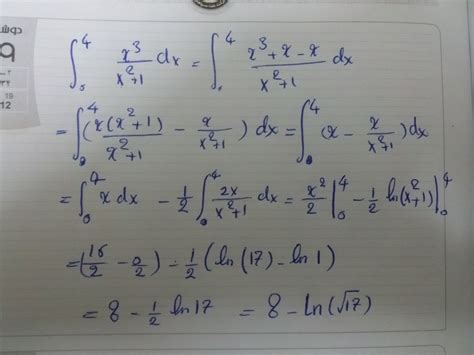 ∫₀⁴ x³/(x²+1) dx = ∫₀⁴ (x³+x-x)/(x²+1) dx
= ∫₀⁴ (x(x²+1)/(x²+1) - x/(x²+1)) dx = ∫₀⁴ (x - x/(x²+1)) dx
= ∫₀⁴ x dx - 1/2 ∫₀⁴ 2x/(x²+1) dx = x²/2 |₀⁴ - 1/2 ln(x²+1) |₀⁴
= (16/2 - 0/2) - 1/2 (ln(17) - ln 1)
= 8 - 1/2 ln 17 = 8 - Ln(√17)